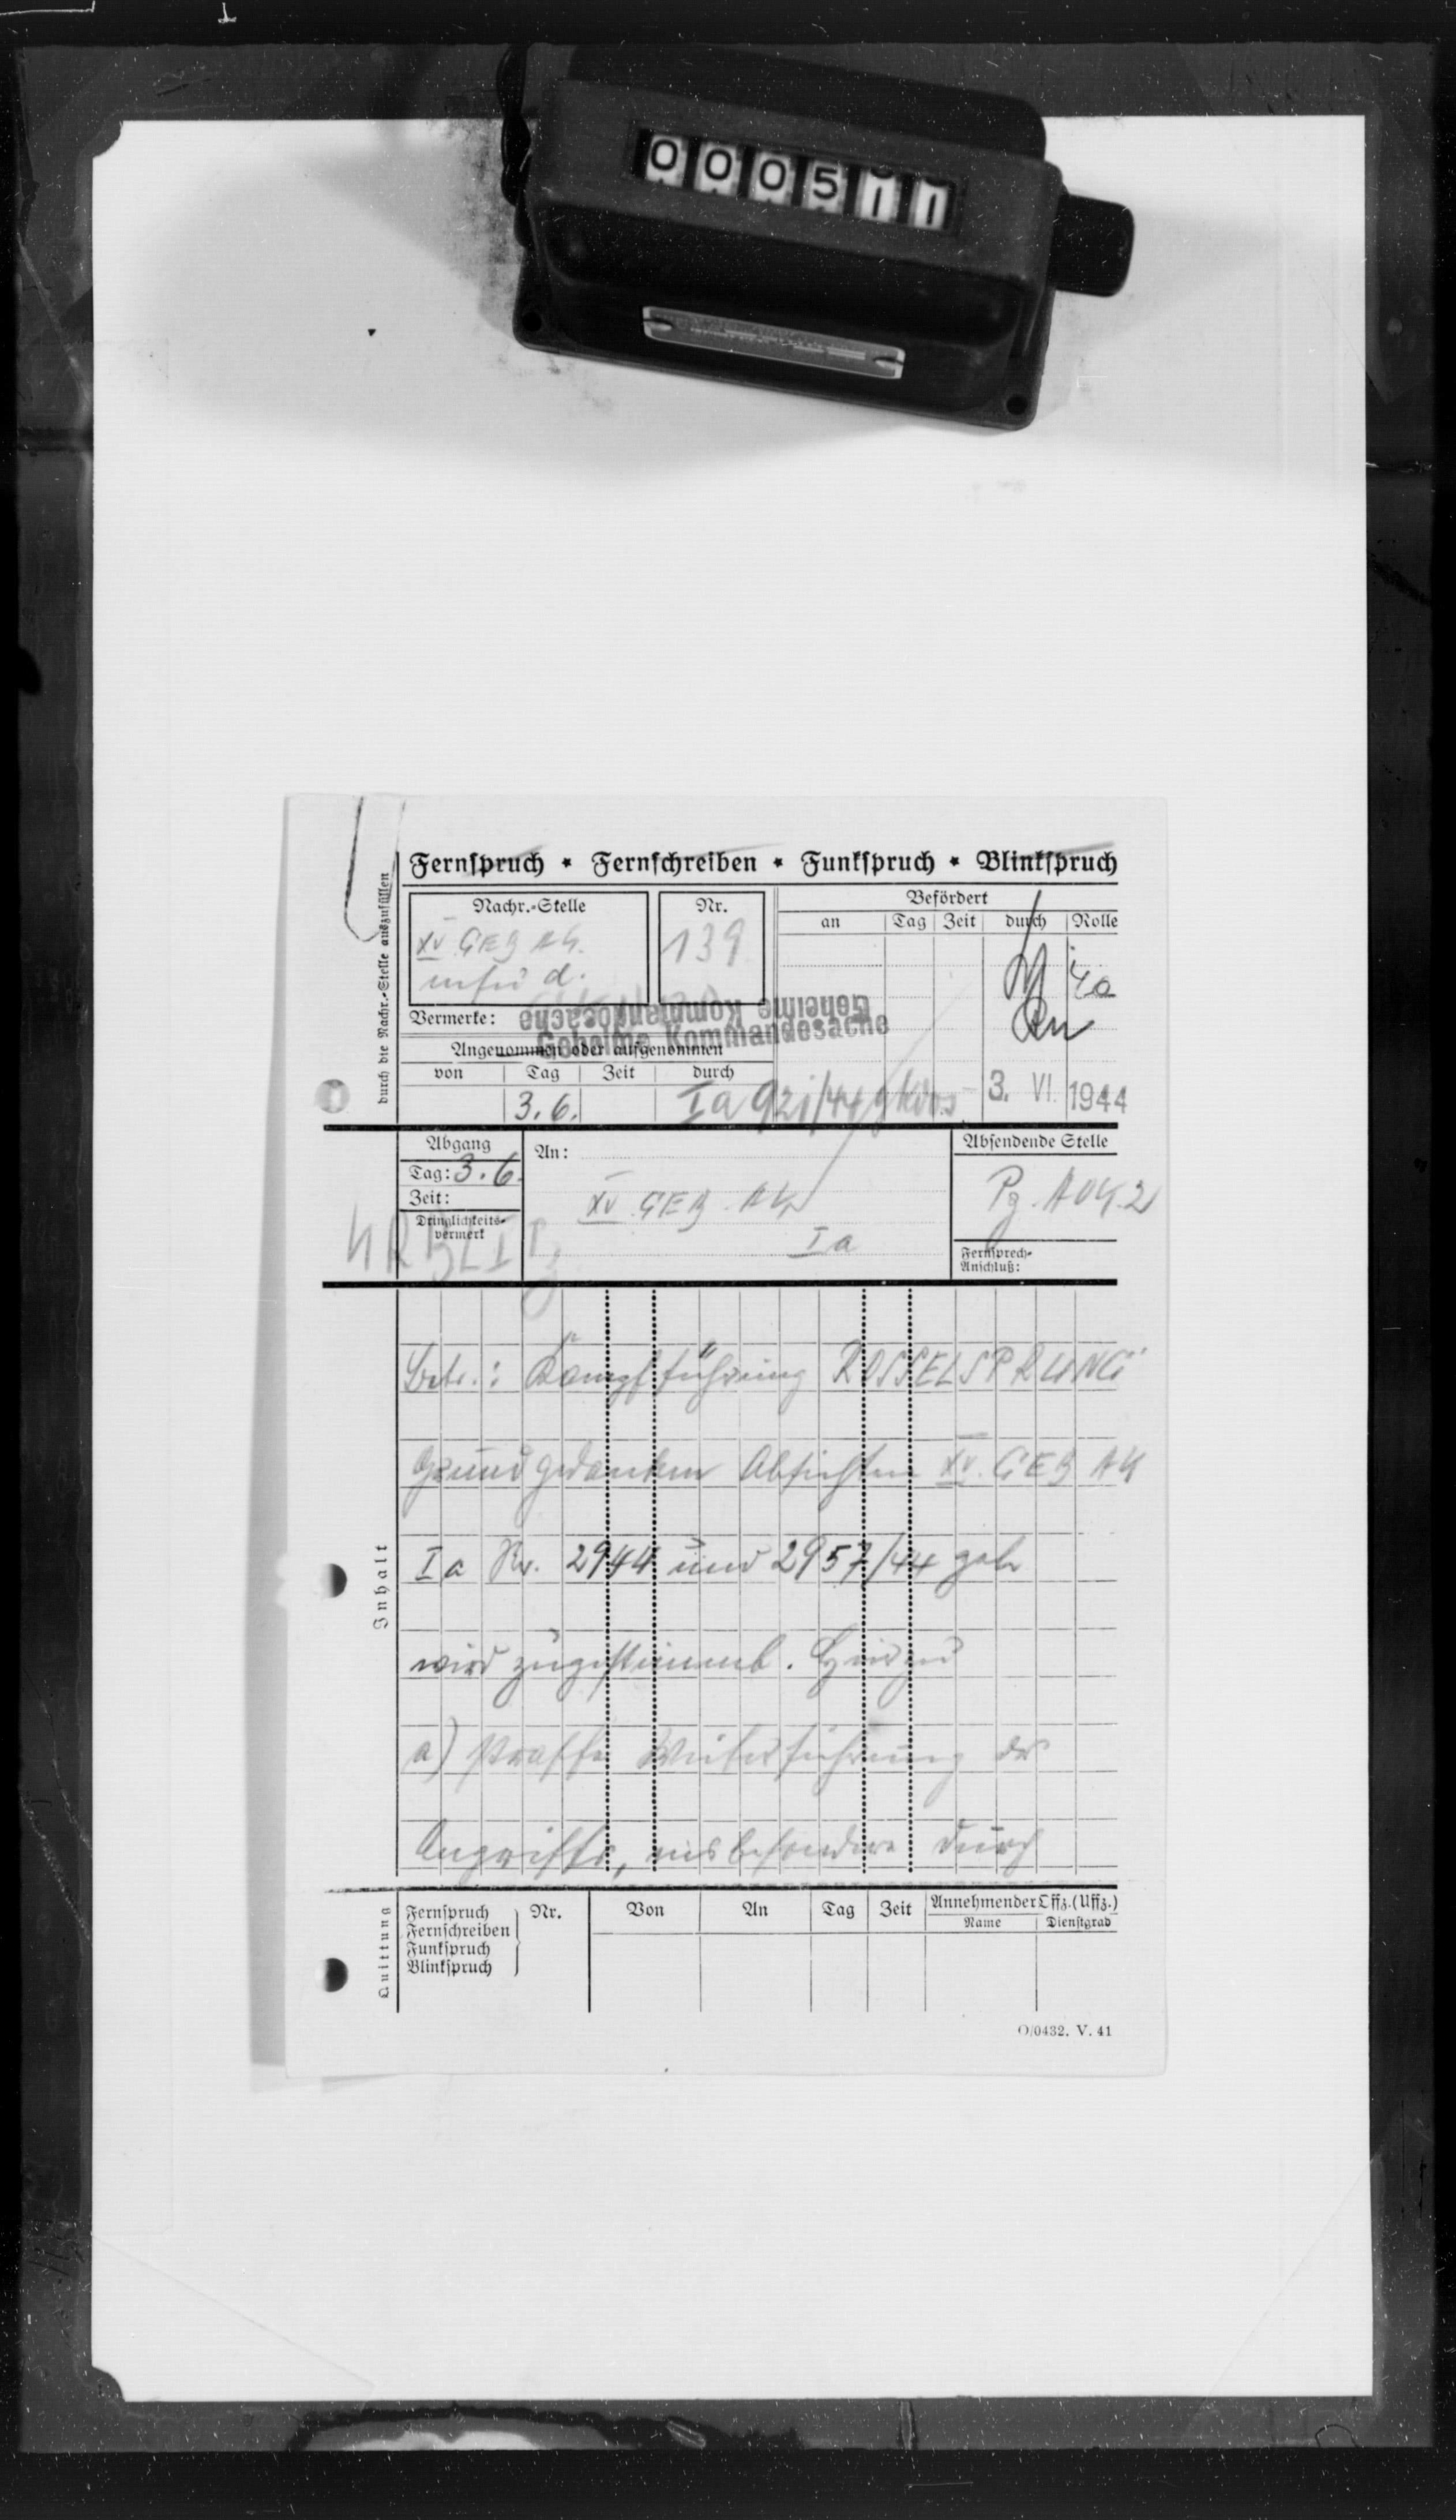 000511
Fernspruch * Fernschreiben * Funkspruch * Blinkspruch
durch die Nachr.-Stelle auszufüllen
Nachr.-Stelle
XV GEB AK.
Nr.
139
Befördert
an Tag Zeit durch Rolle
Vermerke:
Geheime Kommandosache
Geheime Kommandosache
Angenommen oder aufgenommen
von Tag Zeit durch
3.6.
Ia 921/44 gKdos
3. VI. 1944
Abgang
Tag: 3.6.
Zeit:
Dringlichkeits-
vermerk
An:
XV GEB. AK
Ia
Absendende Stelle
Pz. AOK 2
Fernsprech-
Anschluß:
Inhalt
Betr.: Kampfführung RÖSSELSPRUNG
Grundgedanken Absichten XV. GEB AK
Ia Nr. 2944 und 2957/44 geh
wird zugestimmt. Hierzu
a) straffe Weiterführung des
Angriffs, insbesondere durch
Quittung
Fernspruch
Fernschreiben
Funkspruch
Blinkspruch
Nr. Von An Tag Zeit
Annehmender Offz. (Uffz.)
Name Dienstgrad
O/0432. V. 41